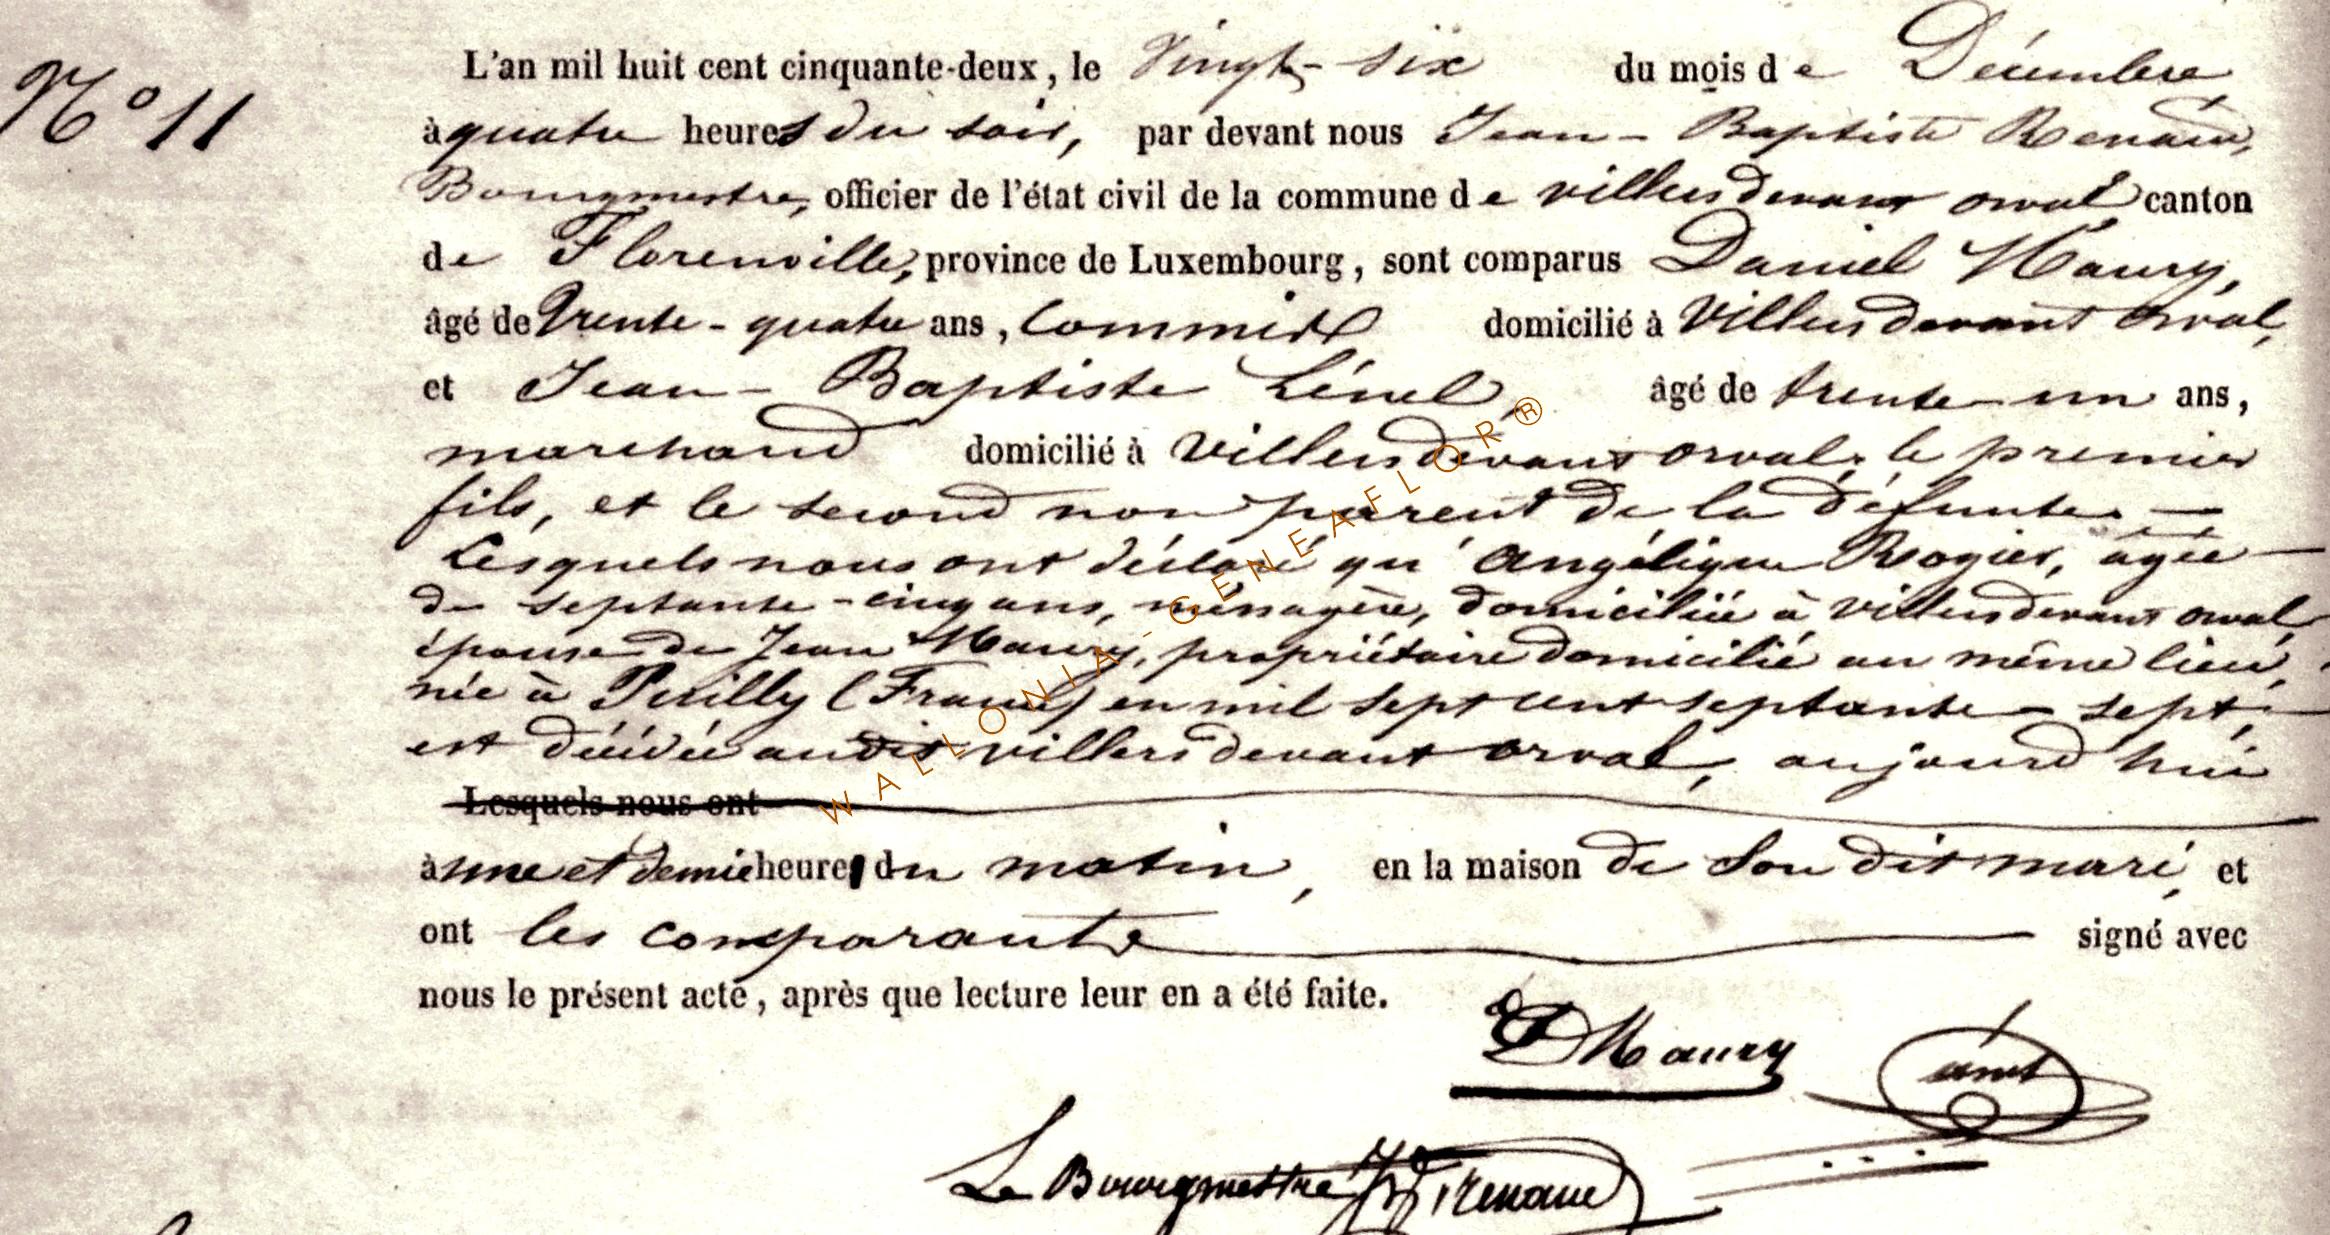 N° 11
L'an mil huit cent cinquante-deux, le Vingt-six du mois de Décembre,
à quatre heures du soir, par devant nous Jean-Baptiste Renaud,
Bourgmestre, officier de l'état civil de la commune de villers devant orval, canton
de Florenville, province de Luxembourg, sont comparus Daniel Maury,
âgé de Trente-quatre ans, Commis domicilié à Villers devant orval,
et Jean-Baptiste Lénel, âgé de trente-un ans,
marchand domicilié à Villers devant orval, le premier
fils, et le second non parent de la défunte. —
Lesquels nous ont déclaré qu'Angélique Rogier, âgée —
de septante-cinq ans, ménagère, domiciliée à villers devant orval,
épouse de Jean Maury, propriétaire domicilié au même lieu,
née à Puilly (France) en mil sept cent septante-sept,
est décédée audit villers devant orval, aujourd'hui
Lesquels nous ont
à une et demie heure du matin, en la maison de Son dit mari, et
ont les comparants signé avec
nous le présent acte, après que lecture leur en a été faite.
D Maury
Le Bourgmestre Renaud
WALLONIA-GENEAFLOR®